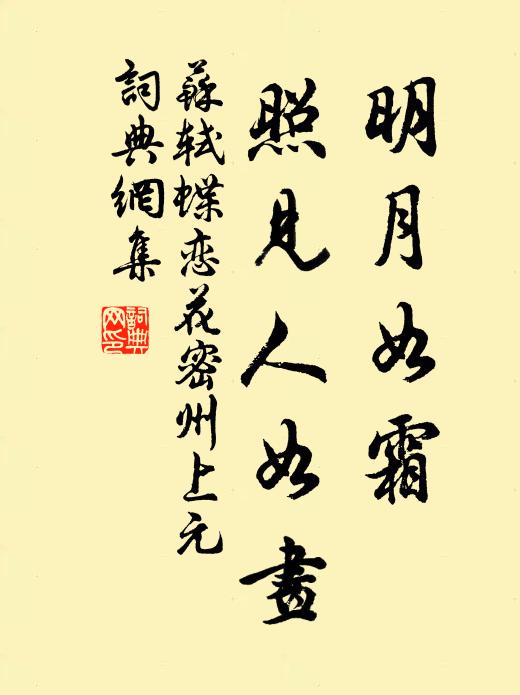 明月如霜
照見人如畫
蘇軾蝶恋花密州上元
詞典網集
詞典网印